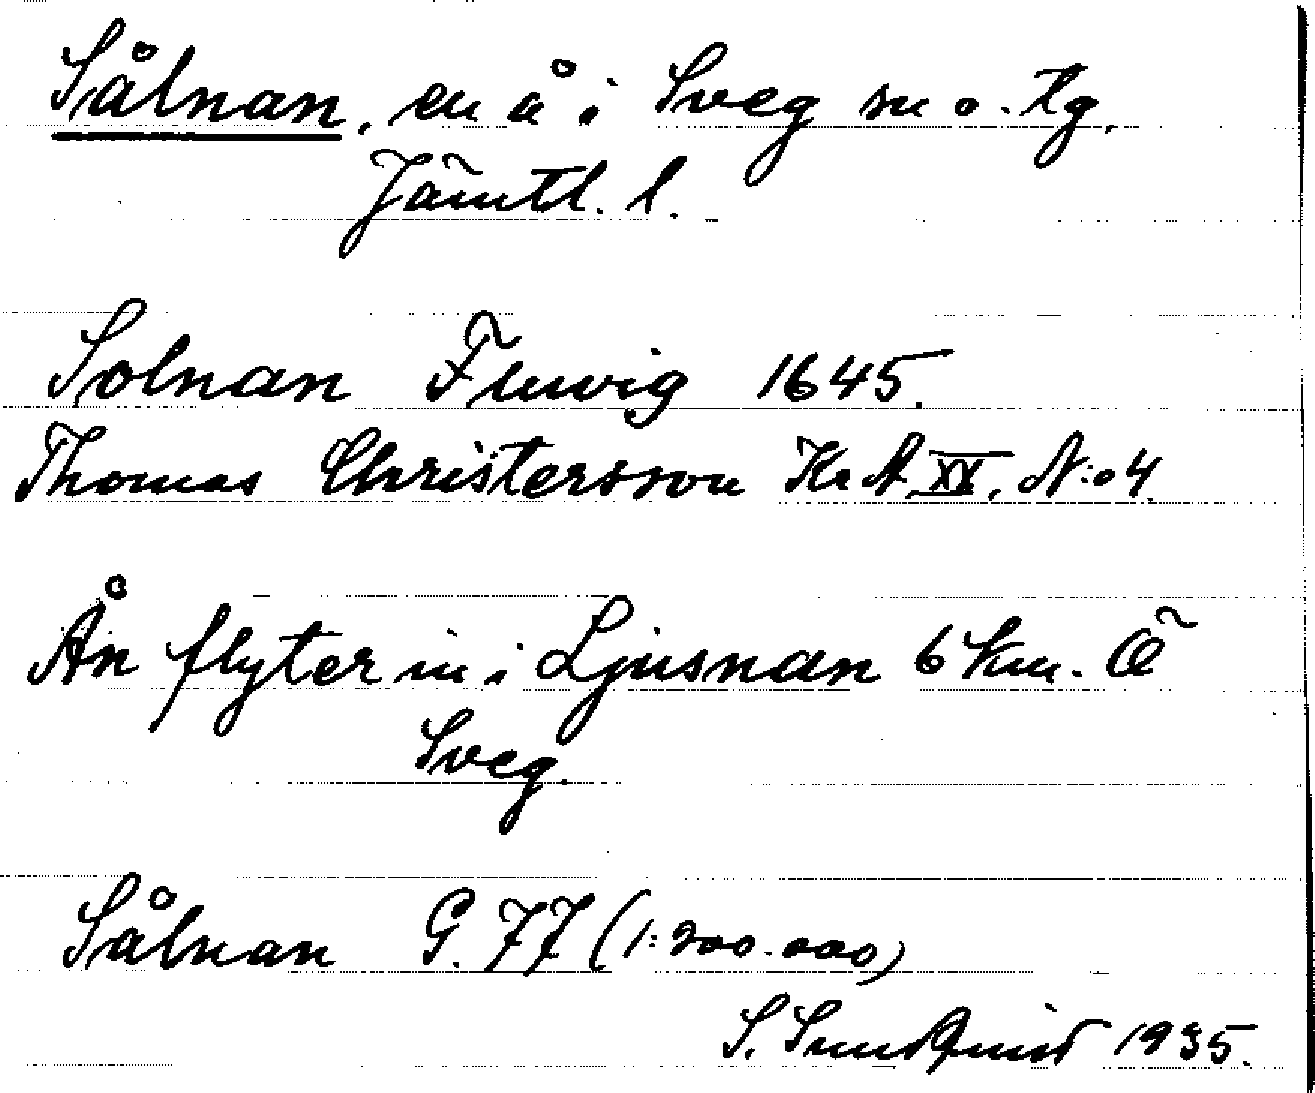 Sålnan, en å i Sveg sn o. tg,
Jämtl. l.
Solnan Fluvig 1645.
Thomas Christersson Kr A. XX, N:o 4.
Ån flyter in i Ljusnan 6 km. Ö
Sveg.
Sålnan G. 77 (1:200.000)
S. Sundquist 1935.